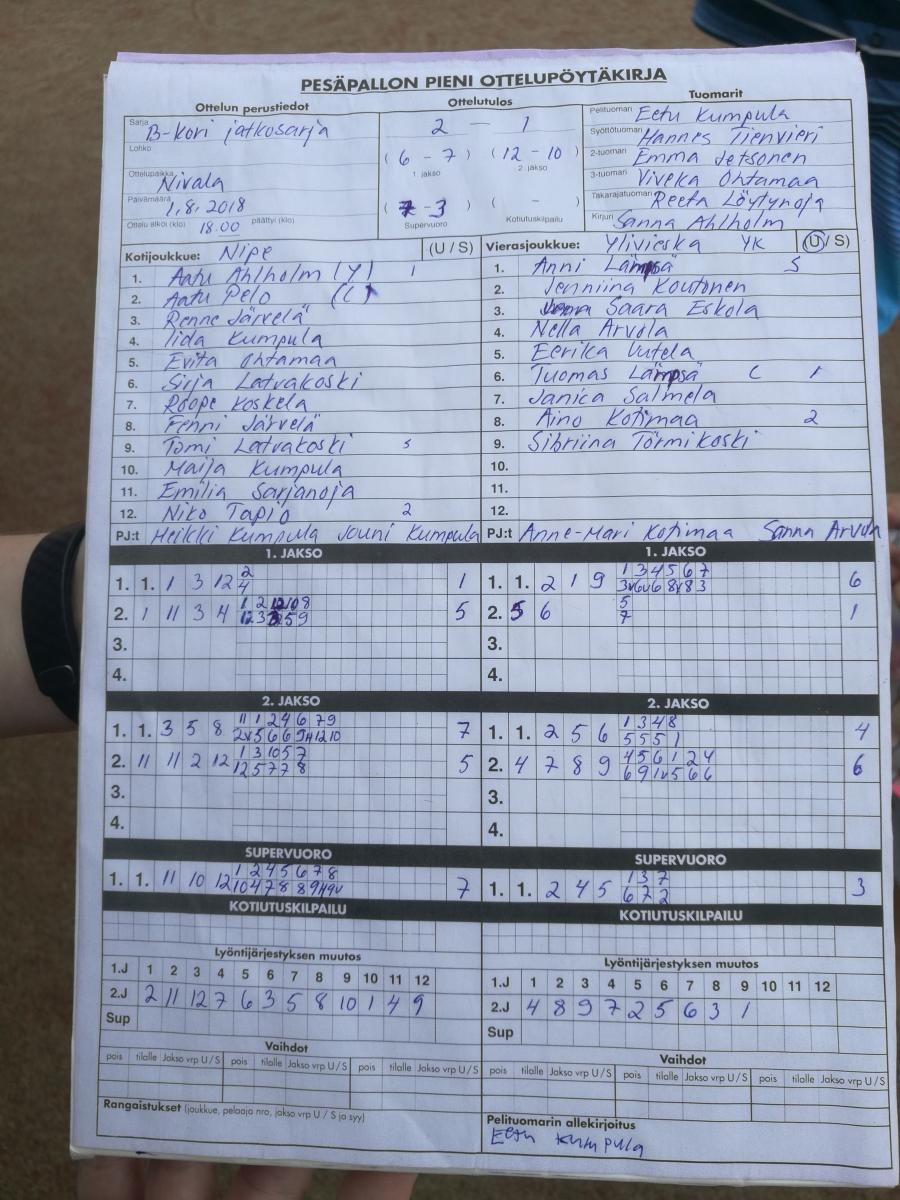 PESÄPALLON PIENI OTTELUPÖYTÄKIRJA
Ottelun perustiedot
Ottelutulos
Tuomarit
Sarja B-kori jatkosarja
Lohko
Ottelupaikka Nivala
Päivämäärä 1.8.2018
Ottelu alkoi (klo) 18.00 päättyi (klo)
2 — 1
( 6 - 7 ) ( 12 - 10 )
1. jakso 2. jakso
( 7 - 3 ) ( - )
Supervuoro Kotiutuskilpailu
Pelituomari Eetu Kumpula
Syöttötuomari Hannes Tienvieri
2-tuomari Emma Jetsonen
3-tuomari Viveka Ohtamaa
Takarajatuomari Reeta Löytynoja
Kirjuri Sanna Ahlholm
Kotijoukkue: Nipe (U / S)
1. Aatu Ahlholm (Y) 1
2. Aatu Pelo (C)
3. Renne Järvelä
4. Iida Kumpula
5. Evita Ohtamaa
6. Sirja Latvakoski
7. Roope Koskela
8. Fenni Järvelä
9. Tomi Latvakoski 3
10. Maija Kumpula
11. Emilia Sarjanoja
12. Niko Tapio 2
PJ:t Heikki Kumpula Jouni Kumpula
Vierasjoukkue: Ylivieska YK (U / S)
1. Anni Lämpsä 5
2. Jenniina Koutonen
3. Saara Eskola
4. Nella Arvola
5. Eerika Uutela
6. Tuomas Lämpsä C 1
7. Janica Salmela
8. Aino Kotimaa 2
9. Sibriina Törmikoski
10.
11.
12.
PJ:t Anne-Mari Kotimaa Sanna Arvola
1. JAKSO
1. 1. 1 3 12 2 1
4
2. 1 11 3 4 5
3.
4.
1. JAKSO
1. 1. 2 1 9 1 3 4 5 6 7 6
2. 5 6 5 1
7
3.
4.
2. JAKSO
1. 1. 3 5 8 11 1 2 4 6 7 9 7
2. 11 11 2 12 1 3 10 5 7 5
12 5 7 7 8
3.
4.
2. JAKSO
1. 1. 2 5 6 1 3 4 8 4
5 5 5 1
2. 4 7 8 9 4 5 6 1 2 4 6
6 9 1v 5 6 6
3.
4.
SUPERVUORO
1. 1. 11 10 12 1 2 4 5 6 7 8 7
SUPERVUORO
1. 1. 2 4 5 1 3 7 3
6 7 2
KOTIUTUSKILPAILU
KOTIUTUSKILPAILU
Lyöntijärjestyksen muutos
1.J 1 2 3 4 5 6 7 8 9 10 11 12
2.J 2 11 12 7 6 3 5 8 10 1 4 9
Sup
Lyöntijärjestyksen muutos
1.J 1 2 3 4 5 6 7 8 9 10 11 12
2.J 4 8 9 7 2 5 6 3 1
Sup
Vaihdot
pois tilalle Jakso vrp U / S pois tilalle Jakso vrp U / S pois tilalle Jakso vrp U / S
Vaihdot
pois tilalle Jakso vrp U / S pois tilalle Jakso vrp U / S pois tilalle Jakso vrp U / S
Rangaistukset (joukkue, pelaaja nro, jakso vrp U / S ja syy)
Pelituomarin allekirjoitus
Eetu Kumpula